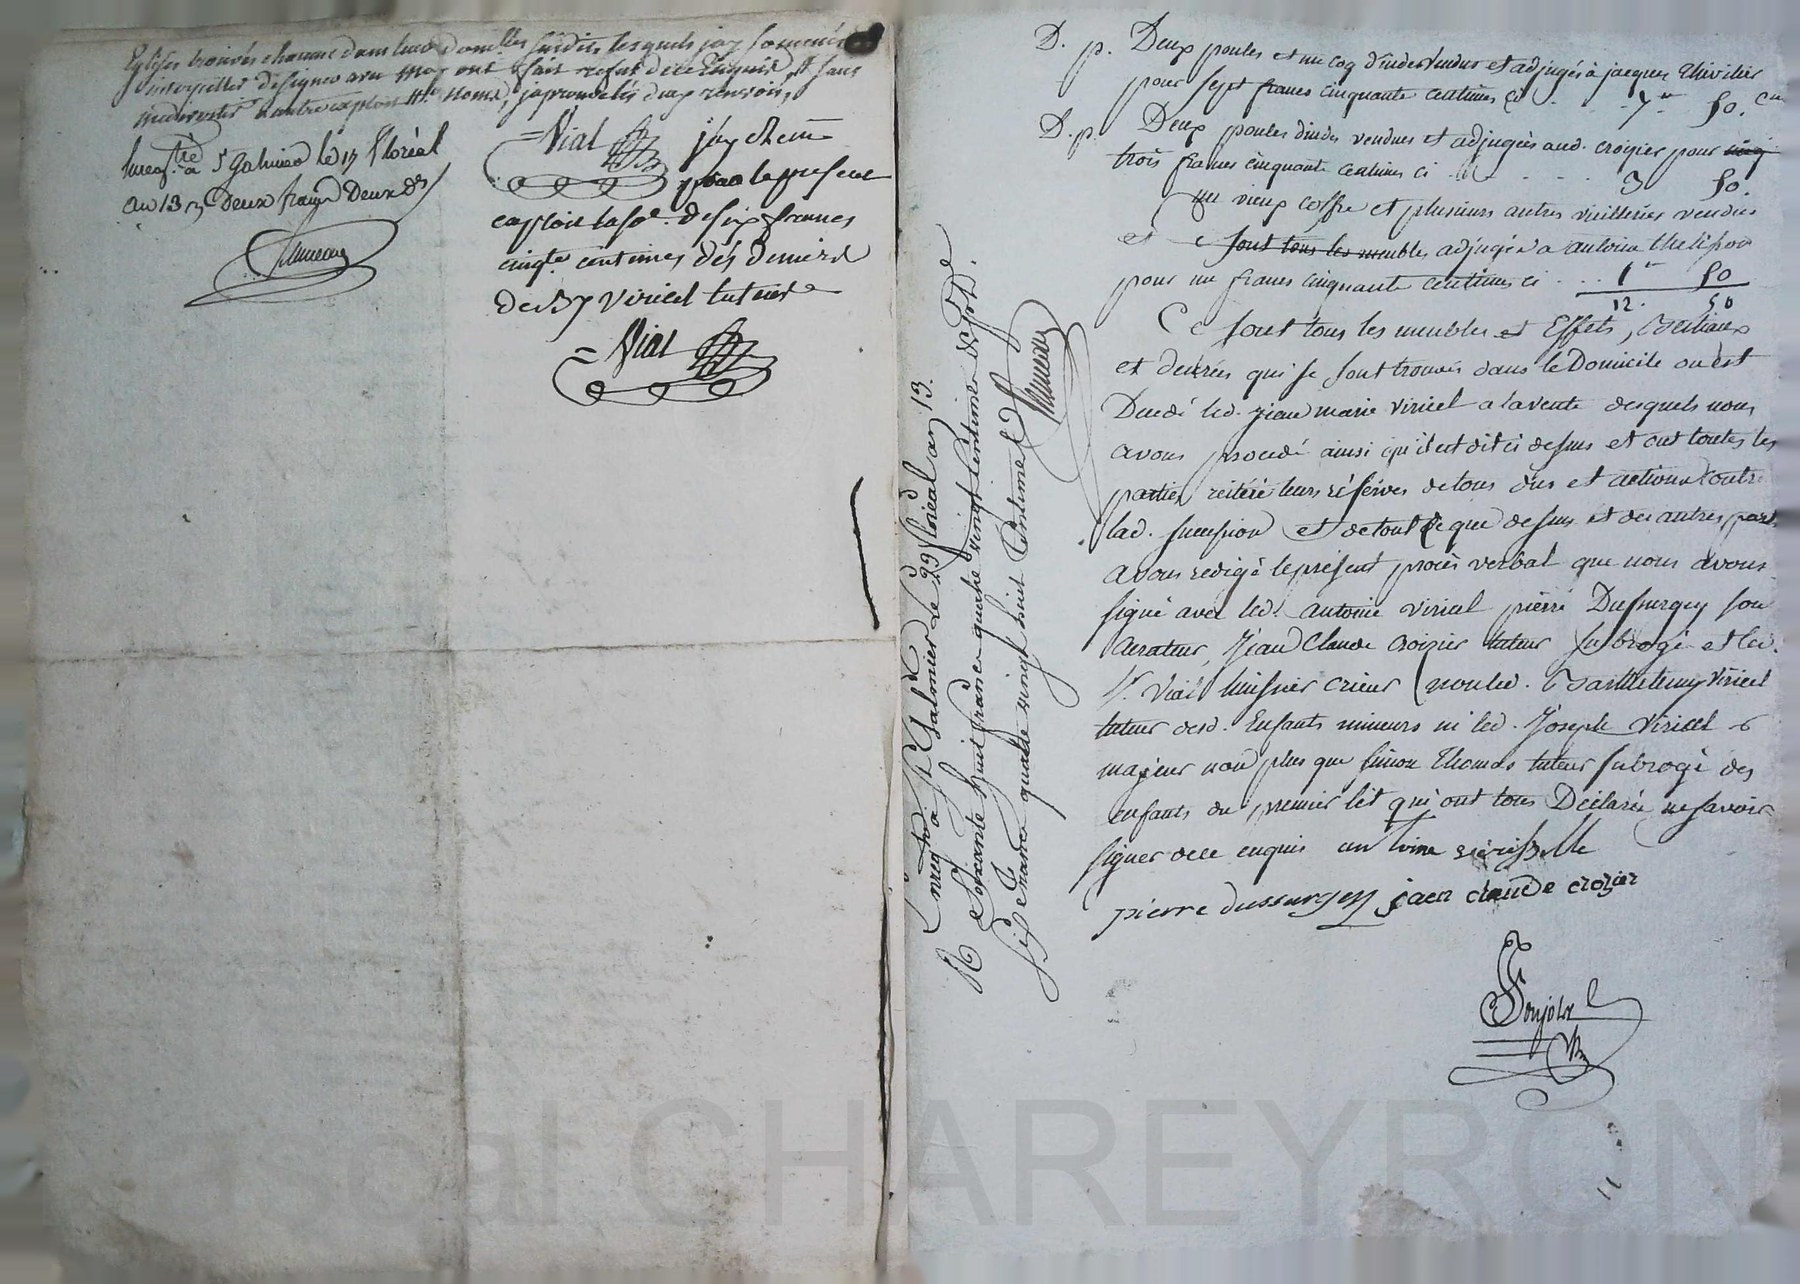 et sans
Enreg.tré à St Galmier le 17 floréal
an 13 R deux francs deux ds
= Vial
jay
pour le présent
exploit la so.e de six francs
cinqte centimes des deniers
de Bmy viricel tuteur
= Vial
D. p. Deux poules et un coq d'inde vendus et adjugés à jacques thivilier
pour sept francs cinquante centimes ci . . 7 tt 50. c
D. p. Deux poules dindes vendues et adjugées aud. croizier pour
trois francs cinquante centimes ci . . . . 3 50.
un vieux coffre et plusieurs autres vieilleries vendus
et ce sont tous les meubles adjugés a antoine
pour un franc cinquante centimes ci . . . 1 50
12. 50
Ce sont tous les meubles et Effets, Bestiaux
et denrées qui se sont trouvés dans le Domicile ou est
Décédé led. jean marie viricel a la vente desquels nous
avons procédé ainsi qu'il est dit ci dessus et ont toutes les
parties réitéré leurs réserves de tous dus et actions contre
lad. succession et de tout ce que dessus et des autres parts
avons redigé le présent procès verbal que nous avons
signé avec led. antoine viricel pierre Dussurgey son
curateur, Jean Claude croizier tuteur subrogé et led.
Sr. Vial huissier crieur non led. Barthelemy viricel
tuteur desd. Enfants mineurs ni led. Joseph Viricel
majeur non plus que simon Thomas tuteur subrogé des
enfants du premier lit qui ont tous Déclaré ne savoir
signer de ce enquis
pierre dussurgey jaen claude crozier
Enreg.tré à St Galmier le 29 floréal an 13.
R soixante huit francs quatre vingt centimes
six francs quatre vingt huit centimes
Pascal CHAREYRON